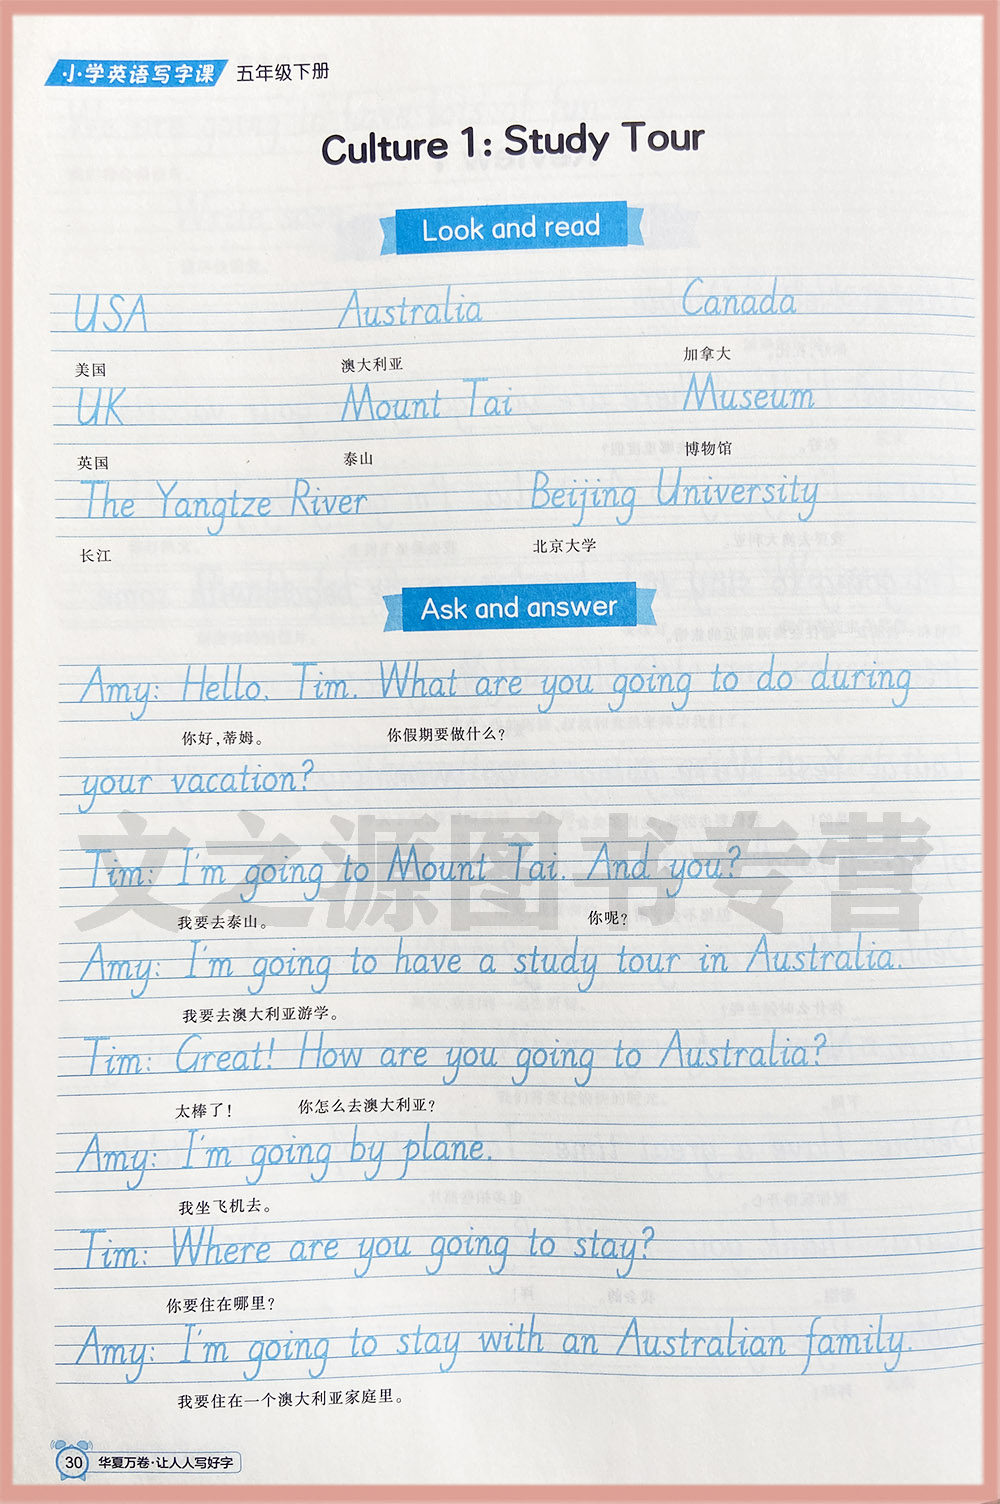 小学英语写字课 五年级下册
Culture 1: Study Tour
Look and read
USA Australia Canada
美国 澳大利亚 加拿大
UK Mount Tai Museum
英国 泰山 博物馆
The Yangtze River Beijing University
长江 北京大学
Ask and answer
Amy: Hello, Tim. What are you going to do during
你好，蒂姆。 你假期要做什么？
your vacation?
文之源图书专营
Tim: I'm going to Mount Tai. And you?
我要去泰山。 你呢？
Amy: I'm going to have a study tour in Australia.
我要去澳大利亚游学。
Tim: Great! How are you going to Australia?
太棒了！ 你怎么去澳大利亚？
Amy: I'm going by plane.
我坐飞机去。
Tim: Where are you going to stay?
你要住在哪里？
Amy: I'm going to stay with an Australian family.
我要住在一个澳大利亚家庭里。
30 华夏万卷·让人人写好字